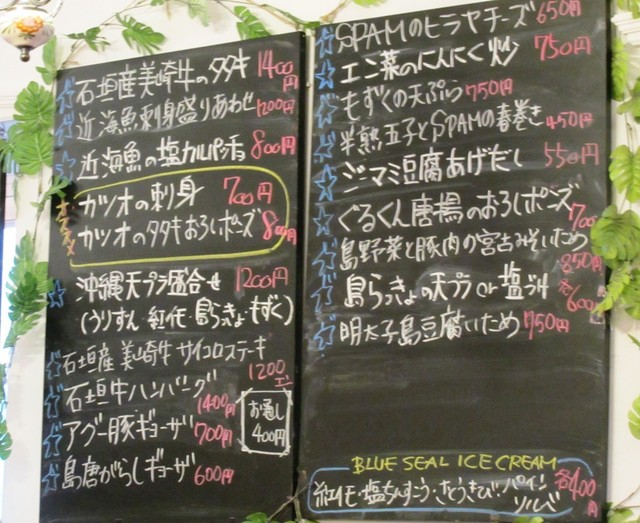 石垣産美崎牛のタタキ 1400円
近海魚刺身盛りあわせ 1200円
近海魚の塩カルパッチョ 800円
オススメ
カツオの刺身 700円
カツオのタタキおろしポン酢 800円
沖縄天プラ盛合せ 1200円
(うりずん・紅イモ・島らっきょ・もずく)
石垣産美崎牛サイコロステーキ
1200円
石垣牛ハンバーグ
1400円
アグー豚ギョーザ 700円
島唐がらしギョーザ 600円
お通し
400円
SPAMのヒラヤチーズ 650円
エン菜のにんにく炒 750円
もずくの天ぷら 750円
半熟玉子とSPAMの春巻き 450円
ジーマミ豆腐あげだし 550円
ぐるくん唐揚のおろしポンズ 700
島野菜と豚肉の宮古みそいため
850円
島らっきょの天プラor塩づけ 各600
明太子島豆腐いため 750円
BLUE SEAL ICE CREAM
紅イモ・塩ちんすこう・さとうきび・パイン 各400円
ソルベ